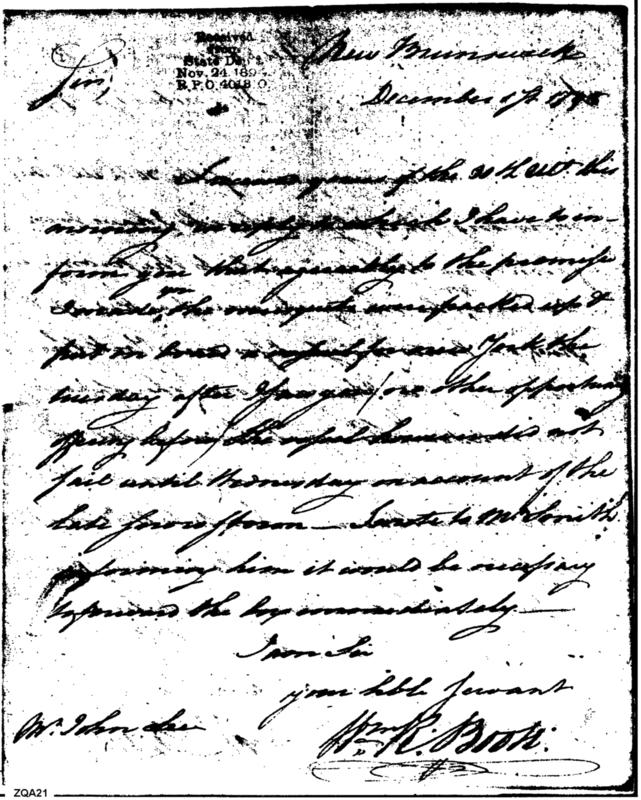 Received
from
State De
Nov. 24 189
R.P.O. 4018 0.
New Brunswick
Sir,
December 1st
I received yours of the 30th Ult. this
morning in reply to which I have to in-
form you that agreeably to the promise
I made you the were packed up &
put on board a vessel for New York the
tuesday after I saw you / no other opportunity
offering before / the vessel however did not
sail until Wednesday on account of the
late storm — I wrote to Mr Smith
informing him it would be necessary
to forward the box immediately —
I am Sir
your hble servant
Mr. John Lee
Wm R. Book.
ZQA21